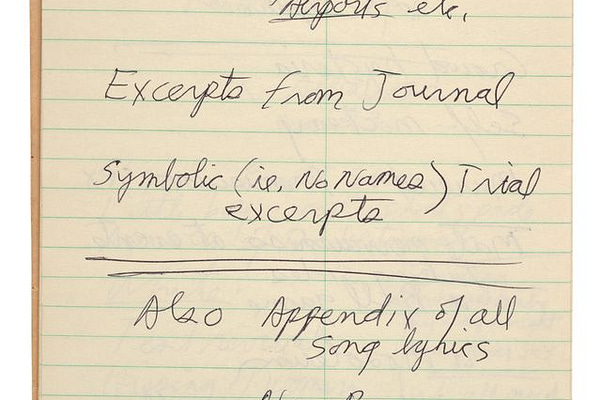 Airports etc.
Excerpts from Journal
Symbolic (ie, no names) Trial
excerpts
Also Appendix of all
song lyrics